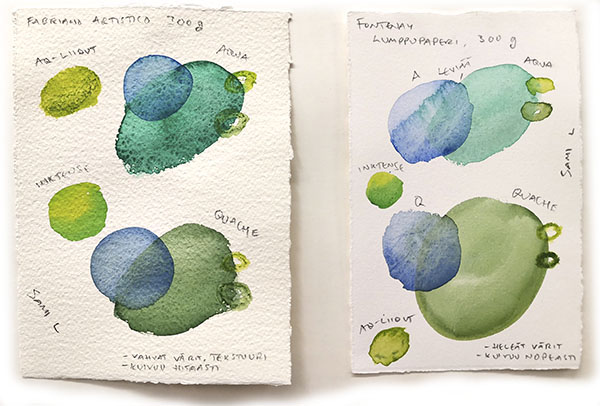 FABRIANO ARTISTICO 300 g
AQ-LIIDUT
AQUA
INKTENSE
GUACHE
SAMI L
- VAHVAT VÄRIT, TEKSTUURI
- KUIVUU HITAASTI
FONTENAY
LUMPPUPAPERI, 300 g
A LEVIÄÄ
AQUA
SAMI L
INKTENSE
G
GUACHE
AQ-LIIDUT
- HELEÄT VÄRIT
- KUIVUU NOPEASTI